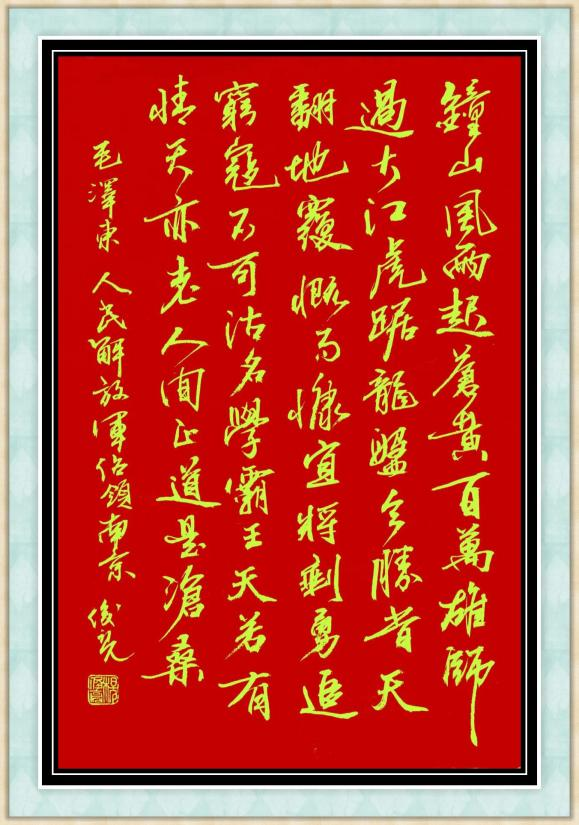 鐘山風雨起蒼黃百萬雄師
過大江虎踞龍盤今勝昔天
翻地覆慨而慷宜將剩勇追
窮寇不可沽名學霸王天若有
情天亦老人間正道是滄桑
毛澤東 人民解放軍佔領南京